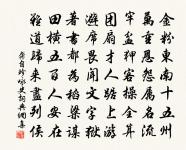 金粉東南十五州
萬重恩怨屬名流
牢盆狎客操全算
團扇才人踞上游
避席畏聞文字獄
著書都為稻粱謀
田橫五百人安在
難道歸來盡列侯
龔自珍詠史詞典網